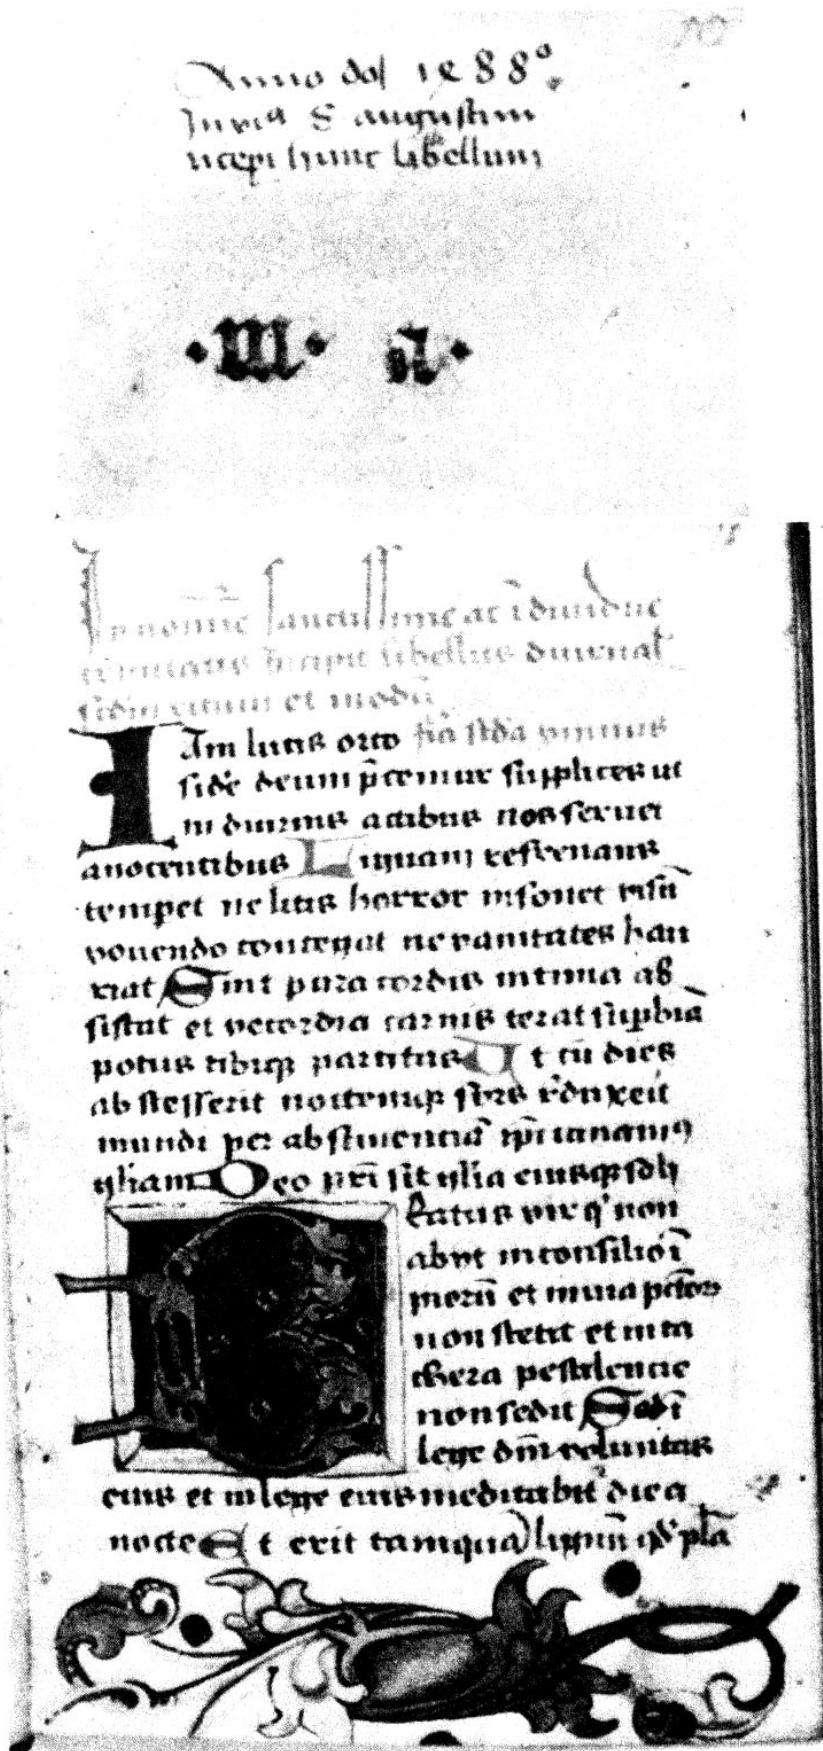 Anno dn̄i 1488°
S augustini
hunc libellum
·m· n·
In nomīe sanctissime ac īdiuidue
trinitatis Incipit libellus diurnal
scdm ritum et modū
IAm lucis orto fīa scd̄a primus
side deum p̄cemur supplices ut
in diurnis actibus nos seruet
anocentibus Linguam refrenans
tempet ne litis horror insonet visū
vouendo contegat ne vanitates hau
riat Sint pura cordis intima ab
sistat et vecordia carnis terat supbiā
potus cibiqꝫ parcitas Ut cū dies
abscesserit noctemqꝫ sors rēduxerit
mundi per abstinenciā ip̄i canamꝰ
gliam Deo pr̄i sit glia eiusqꝫ soli
Beatus vir q' non
abyt in consilio ī
piorū et in uia pctōꝝ
non stetit et in ca
thera pestilencie
non sedit Sed ī
lege dn̄i voluntas
eius et in lege eius meditabit' die a
nocte Et erit tamquā lignū qd' plā